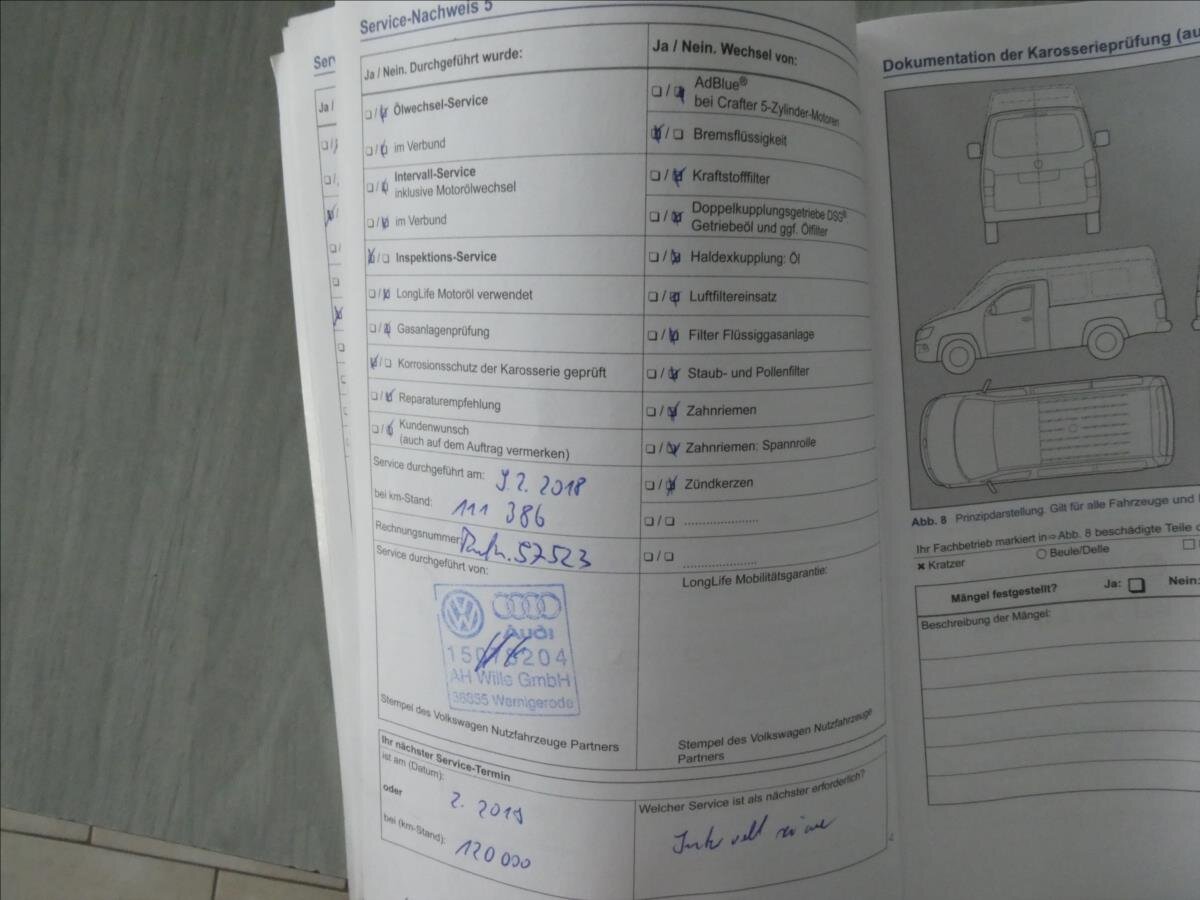 Service-Nachweis 5
Ja / Nein. Durchgeführt wurde:
❏ / ❏ Ölwechsel-Service
❏ / ❏ im Verbund
❏ / ❏ Intervall-Service
inklusive Motorölwechsel
❏ / ❏ im Verbund
❏ / ❏ Inspektions-Service
❏ / ❏ LongLife Motoröl verwendet
❏ / ❏ Gasanlagenprüfung
❏ / ❏ Korrosionsschutz der Karosserie geprüft
❏ / ❏ Reparaturempfehlung
❏ / ❏ Kundenwunsch
(auch auf dem Auftrag vermerken)
Service durchgeführt am: 9.2.2018
bei km-Stand: 111 386
Rechnungsnummer: 57523
Service durchgeführt von:
Audi
AH Wille GmbH
Wernigerode
Stempel des Volkswagen Nutzfahrzeuge Partners
Ja / Nein. Wechsel von:
❏ / ❏ AdBlue®
bei Crafter 5-Zylinder-Motoren
❏ / ❏ Bremsflüssigkeit
❏ / ❏ Kraftstofffilter
❏ / ❏ Doppelkupplungsgetriebe DSG®
Getriebeöl und ggf. Ölfilter
❏ / ❏ Haldexkupplung: Öl
❏ / ❏ Luftfiltereinsatz
❏ / ❏ Filter Flüssiggasanlage
❏ / ❏ Staub- und Pollenfilter
❏ / ❏ Zahnriemen
❏ / ❏ Zahnriemen: Spannrolle
❏ / ❏ Zündkerzen
❏ / ❏ ....................
❏ / ❏ ....................
LongLife Mobilitätsgarantie:
Stempel des Volkswagen Nutzfahrzeuge
Partners
Ihr nächster Service-Termin
ist am (Datum):
oder 2. 2019
bei (km-Stand): 120 000
Welcher Service ist als nächster erforderlich?
Dokumentation der Karosserieprüfung (au
Abb. 8 Prinzipdarstellung. Gilt für alle Fahrzeuge und
Ihr Fachbetrieb markiert in⇒Abb. 8 beschädigte Teile
✖ Kratzer ○ Beule/Delle
Mängel festgestellt? Ja: ❏ Nein:
Beschreibung der Mängel: